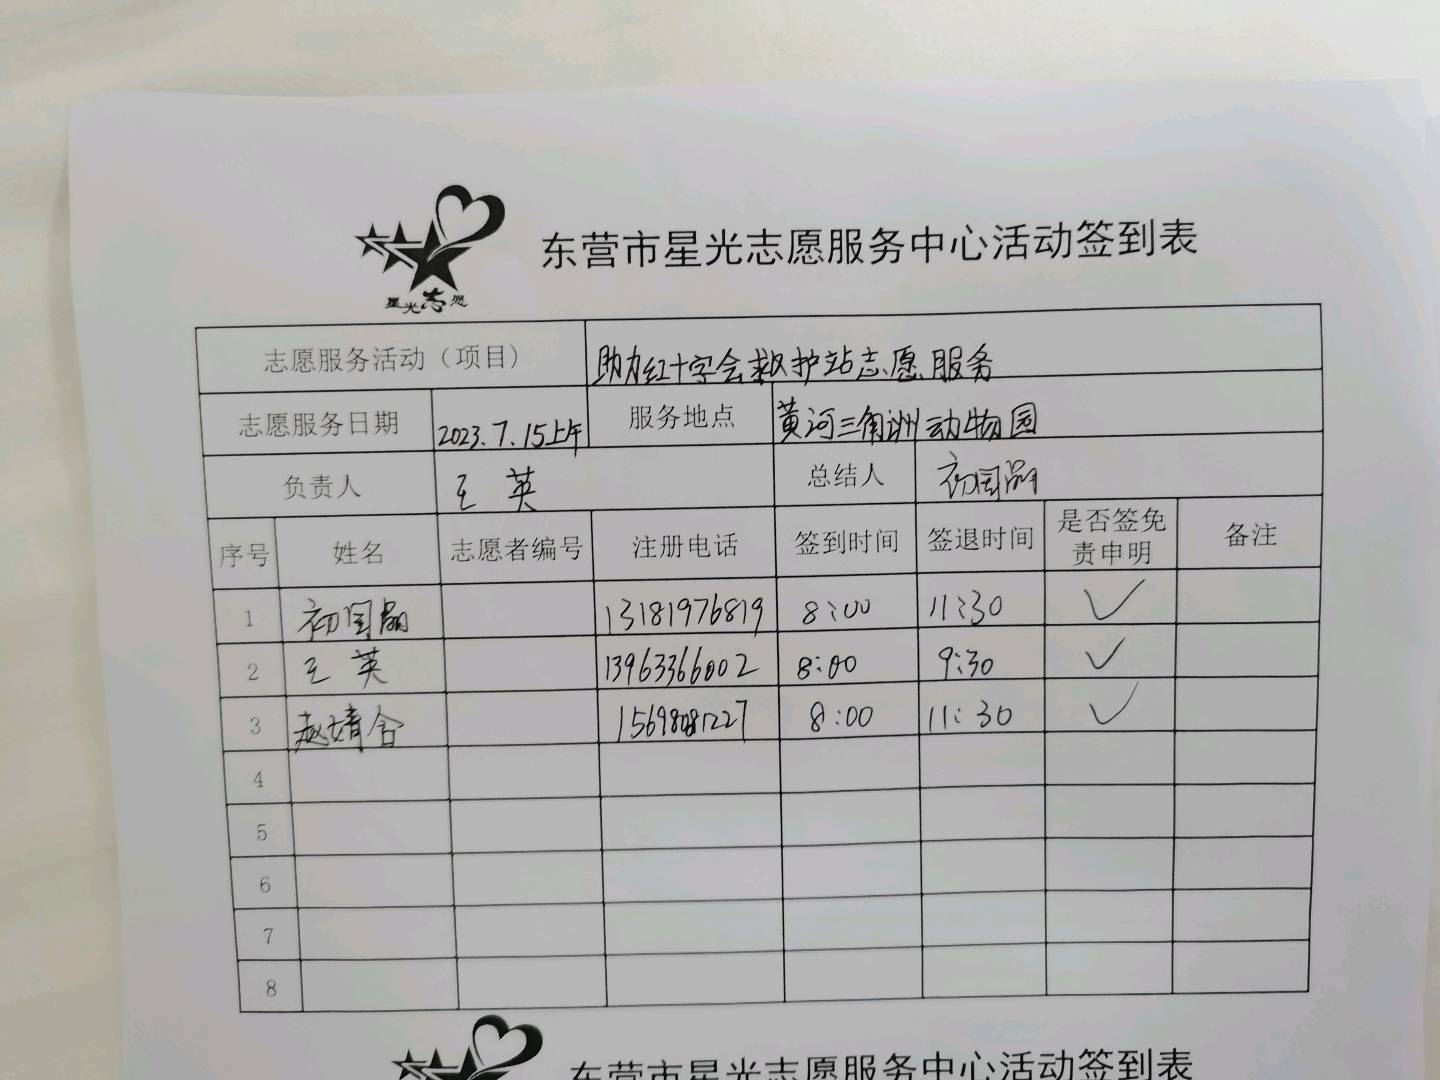 星光志愿
东营市星光志愿服务中心活动签到表
志愿服务活动（项目） 助力红十字会救护站志愿服务
志愿服务日期 2023.7.15上午 服务地点 黄河三角洲动物园
负责人 王英 总结人 初国
序号 姓名 志愿者编号 注册电话 签到时间 签退时间 是否签免责申明 备注
1 初国 13181976819 8:00 11:30 ✓
2 王英 13963366002 8:00 9:30 ✓
3 赵婧含 15698081227 8:00 11:30 ✓
4
5
6
7
8
东营市星光志愿服务中心活动签到表